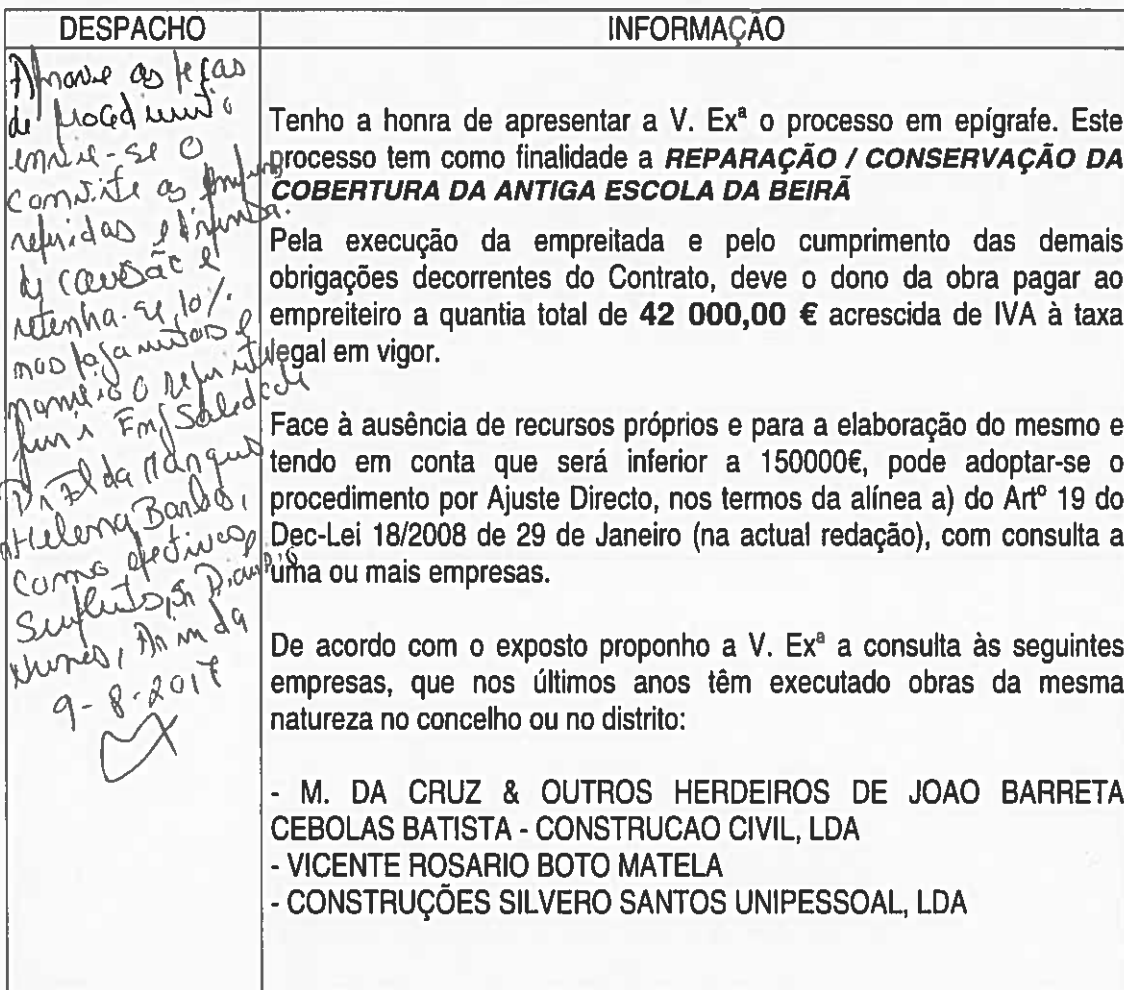 DESPACHO
INFORMAÇÃO
Aprovo as peças
de procedimento
envie-se o
convite as empresas
referidas e dispensa.
de caução e
retenha-se 10%
nos pagamentos e
nomeio o
juri Engº Soledade
Drª Ilda Marques
Helena Barbas,
como efectivos,
Suplentes,
Nunes,
9-8-2017
Tenho a honra de apresentar a V. Exª o processo em epígrafe. Este
processo tem como finalidade a REPARAÇÃO / CONSERVAÇÃO DA
COBERTURA DA ANTIGA ESCOLA DA BEIRÃ
Pela execução da empreitada e pelo cumprimento das demais
obrigações decorrentes do Contrato, deve o dono da obra pagar ao
empreiteiro a quantia total de 42 000,00 € acrescida de IVA à taxa
legal em vigor.
Face à ausência de recursos próprios e para a elaboração do mesmo e
tendo em conta que será inferior a 150000€, pode adoptar-se o
procedimento por Ajuste Directo, nos termos da alínea a) do Artº 19 do
Dec-Lei 18/2008 de 29 de Janeiro (na actual redação), com consulta a
uma ou mais empresas.
De acordo com o exposto proponho a V. Exª a consulta às seguintes
empresas, que nos últimos anos têm executado obras da mesma
natureza no concelho ou no distrito:
- M. DA CRUZ & OUTROS HERDEIROS DE JOAO BARRETA
CEBOLAS BATISTA - CONSTRUCAO CIVIL, LDA
- VICENTE ROSARIO BOTO MATELA
- CONSTRUÇÕES SILVERO SANTOS UNIPESSOAL, LDA